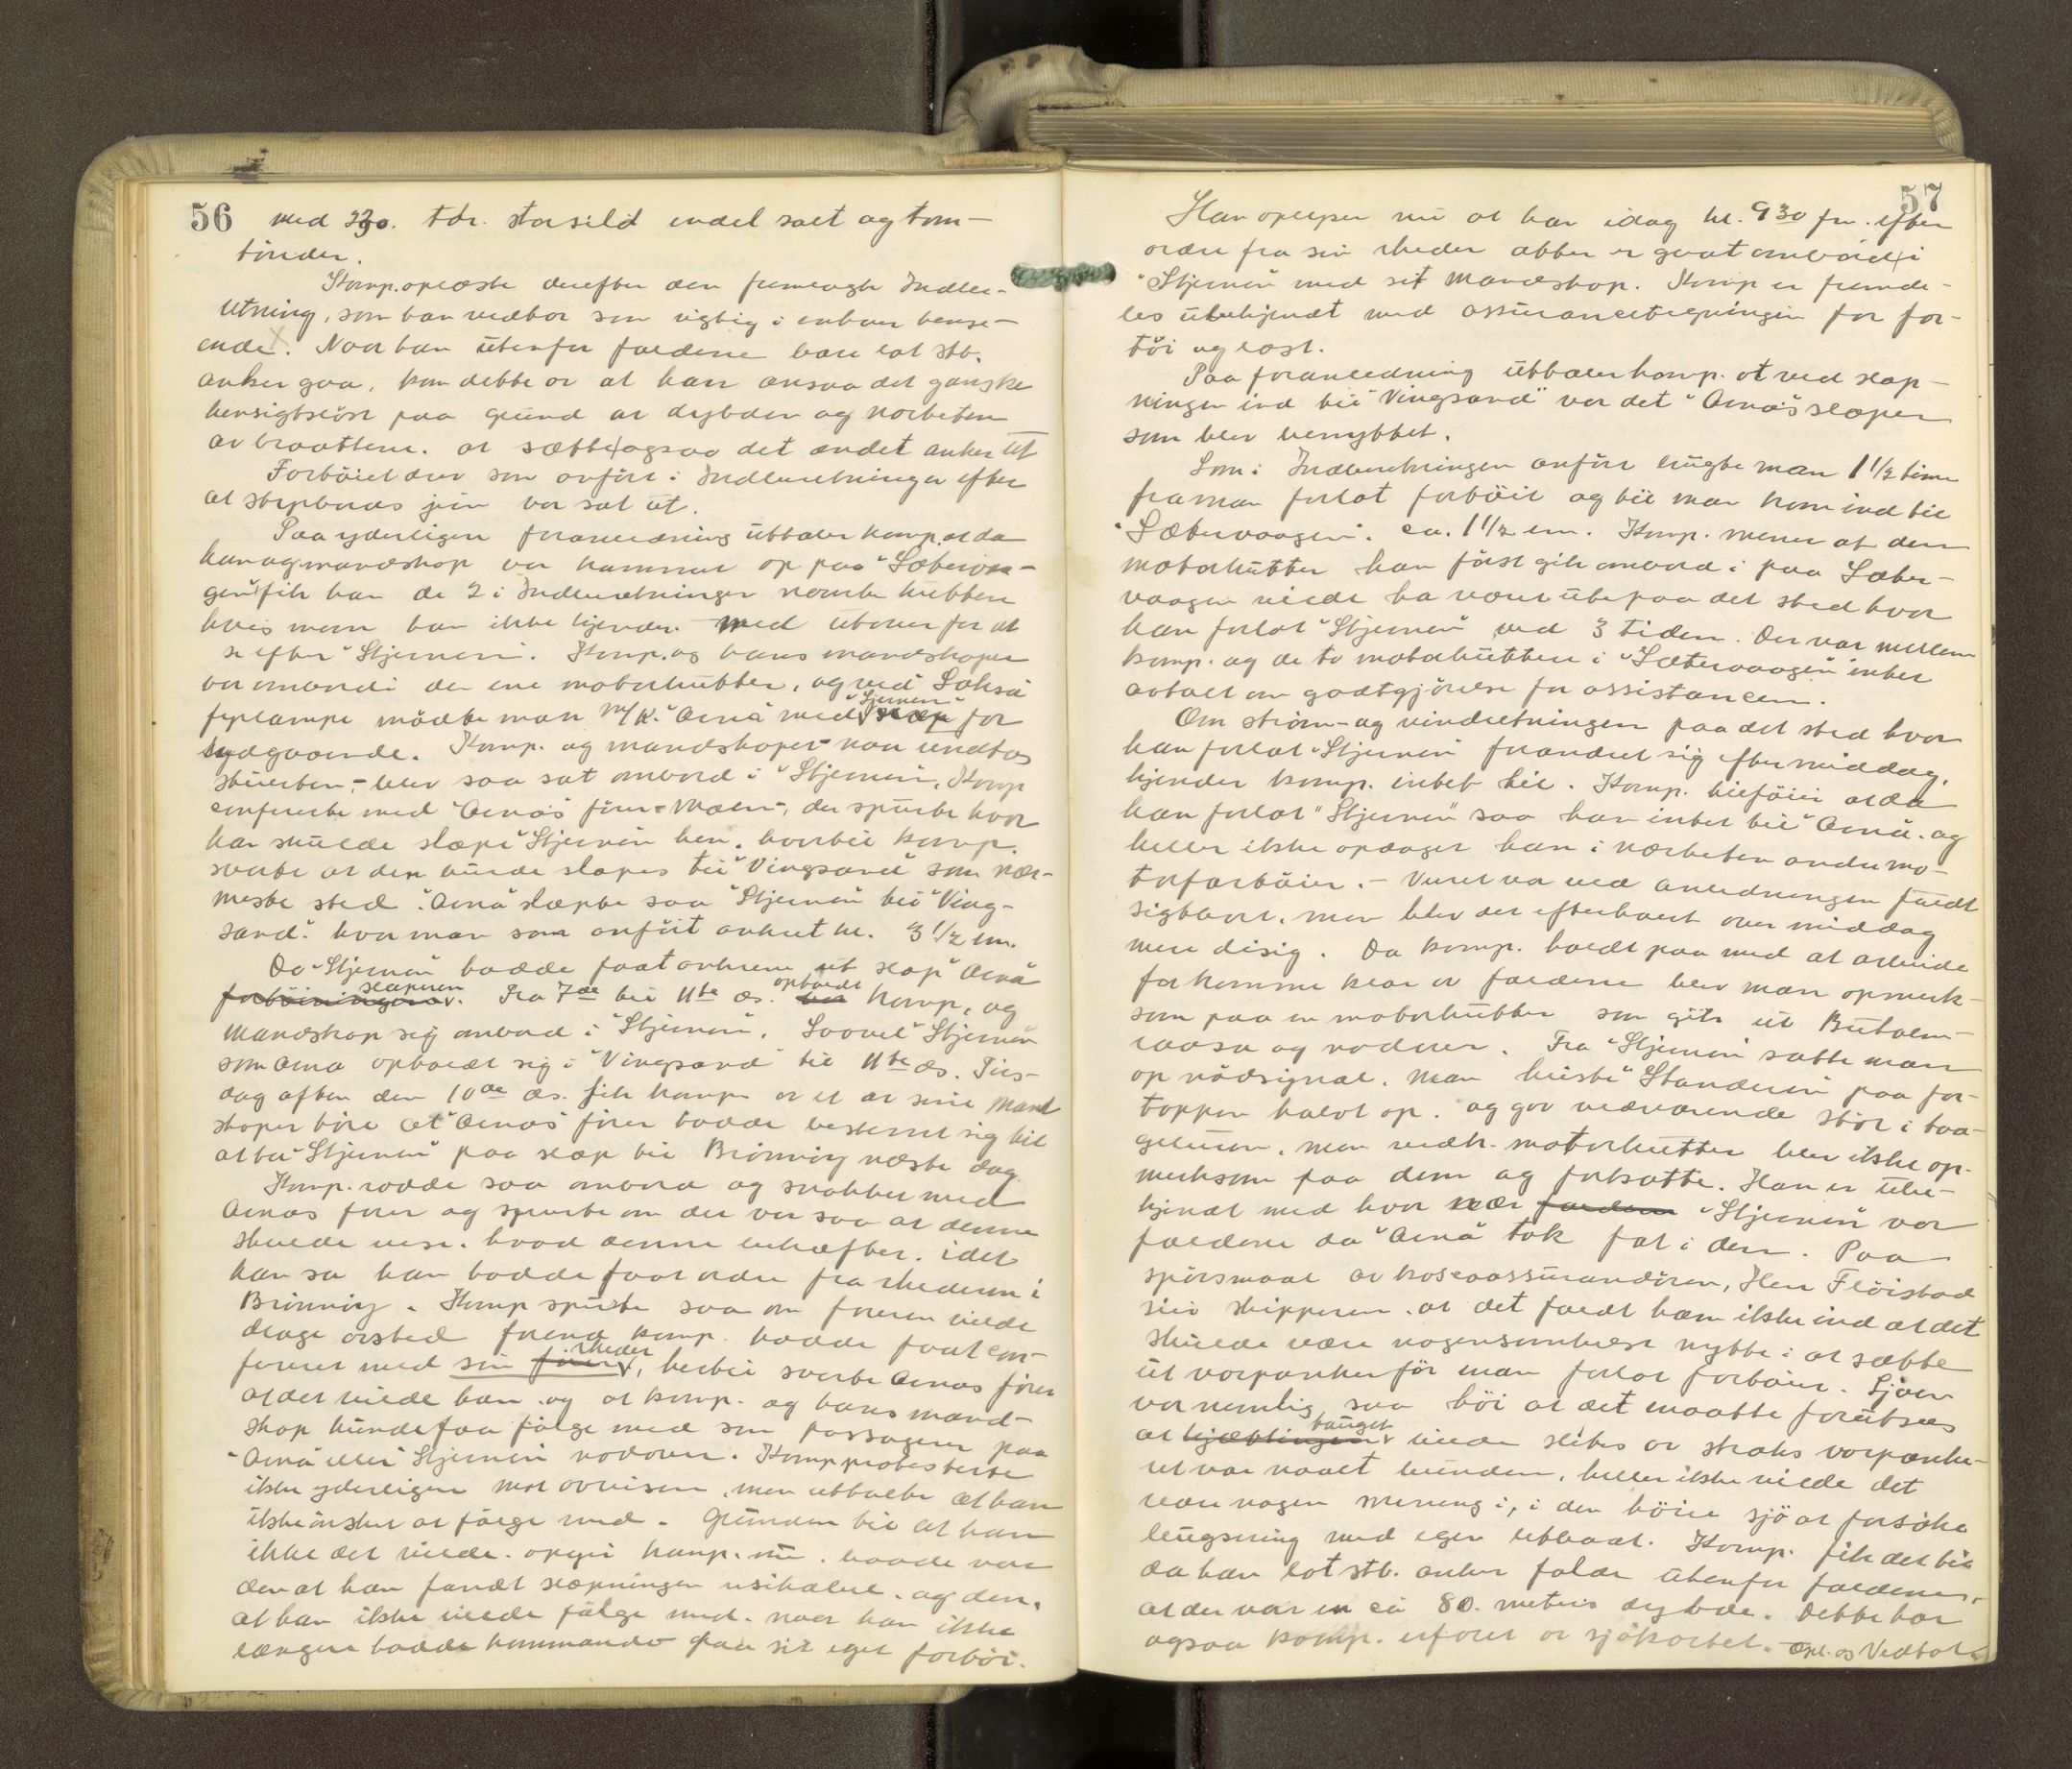 56
med 230. tdr. storsild endel salt og tom-
tönder.
Komp. oplæste derefter den fremlagte Indbe-
retning, som han vedtar som rigtig i enhver hense-
ende. Naar han utenfor faldene bare lot stb.
anker gaa, kom dette av at han ansaa det ganske
hensigtslöst paa grund av dybden og nærheten
av braattene. at sætte ogsaa det andet anker ut
Fartöiet drev som anfört i Indberetningen efter
at styrbords jern var sat ut.
Paa yderligere foranledning uttaler komp. at da
han og mandskap var kommet op paa "Sætervaa-
gen" fik han de 2 i Indberetningen nævnte kuttere
hvis navn han ikke kjender. med utover for at
se efter "Stjernen". Komp. og hans mandskaper
var ombord i den ene motorkutter, og ved
fyrlampe mödte man M/K. "Arna" med "Stjernen" slæp for
sydgaaende. Komp. og mandskaper - naar undtas
stuerten, - blev saa sat ombord i "Stjernen", Komp
confererte med "Arnas" förer - , der spurte hvor
han skulde slæpe "Stjernen" hen. hvortil komp.
svarte at den burde slæpes til "Vingsand" som nær-
meste sted. "Arna" slæpte saa "Stjernen" til "Ving-
sand". hvor man som anfört ankret kl. 3 1/2 em.
Da "Stjernen" hadde faat ankrene ut slap "Arna"
fortöiningerne slæperen. Fra 7de til 11te ds. blev opholdt komp. og
mandskap sig ombord i "Stjernen". Saavel "Stjernen"
som Arna opholdt sig i "Vingsand" til 11te ds. Tirs-
dag aften den 10de ds. fik komp. av et av sine mand
skaper höre at "Arnas" förer hadde bestemt sig til
at ta "Stjernen" paa slæp til Brönnöy næste dag.
Komp. rodde saa ombord og snakket med
Arnas förer og spurte om det var saa at denne
skulde reise. hvad denne bekræftet. idet
han sa han hadde faat ordre fra rhederen i
Brönnöy. Komp spurte saa om föreren vilde
drage avsted förend komp. hadde faat con-
ferert med sin förer rheder, hertil svarte Arnas förer
at det vilde han. og at komp. og hans mand-
skap kunde faa fölge med som passagerer paa
"Arna" eller "Stjernen" nordover. Komp protesterte
ikke yderligere mot avreisen, men uttalte at han
ikke önsket at fölge med. Grunden til at han
ikke det vilde. opgir komp. nu. baade var
den at han fandt slæpningen usikalket. og den,
at han ikke vilde fölge med. naar han ikke
længere hadde kommando paa sit eget fartöi.
57
Han oplyser nu at han idag kl. 9 30 fm. efter
ordre fra sin rheder atter er gaat ombord i
"Stjernen" med sit mandskap. Komp er fremde-
les ubekjendt med assurancetegningen for far-
töi og last.
Paa foranledning uttaler komp. at ved slæp-
ningen ind til "Vingsand" var det "Arna's" slæper
som blev benyttet.
Som i Indberetningen anfört brugte man 1 1/2 time
fra man forlot fartöiet og til man kom ind til
"Sætervaagen". ca. 1 1/2 em. Komp. mener at den
motorkutter han först gik ombord i paa Sæter-
vaagen vilde ha været ute paa det sted hvor
han forlot "Stjernen" ved 3 tiden. Der var mellem
komp. og de to motorkuttere i "Sætervaagen" intet
avtalt om godtgjörelse for assistancen.
Om ström- og vindretningen paa det sted hvor
han forlot "Stjernen" forandret sig eftermiddag.
kjender komp. intet til. Komp. tilföier at da
han forlot "Stjernen" saa han intet til "Arna". og
heller ikke opdaget han i nærheten andre mo-
torfartöier. - Veiret var ved anledningen fuldt
sigtbart. men blev der efterhvert over middag
mere disig. Da komp. holdt paa med at arbeide
for komme klar av faldene blev man opmerk-
som paa en motorkutter som gik ut Butalen-
raasa og nordover. Fra "Stjernen" satte man
op nödsignal. Man heiste "Standeren" paa for-
toppen halvt op. og gav vedvarende stöt i taa-
geluren. men vedk. motorkutter blev ikke op-
merksom paa dem og fortsatte. Han er ube-
kjendt med hvor nær faldene "Stjernen" var
faldene da "Arna" tok fat i den. Paa
spörsmaal av kaskoassurandören, Herr Flöistad
sier skipperen. at det faldt ham ikke ind at det
skulde være nogensomhelst nytte i at sætte
ut varpanker för man forlot fartöiet. Sjöen
var nemlig saa höi at det maatte forutsees
at kjættingen tauget vilde slites av straks varpanke-
ret var naaet bunden, heller ikke vilde det
være nogen mening i, i den höie sjö at forsöke
bugsering med egen livbaat. Komp. fik det til
da han lot stb. anker falde utenfor faldene,
at der var en ca 80. meters dybde. Dette har
ogsaa komp. erfaret av sjökartet. - Opl. og Vedtat.